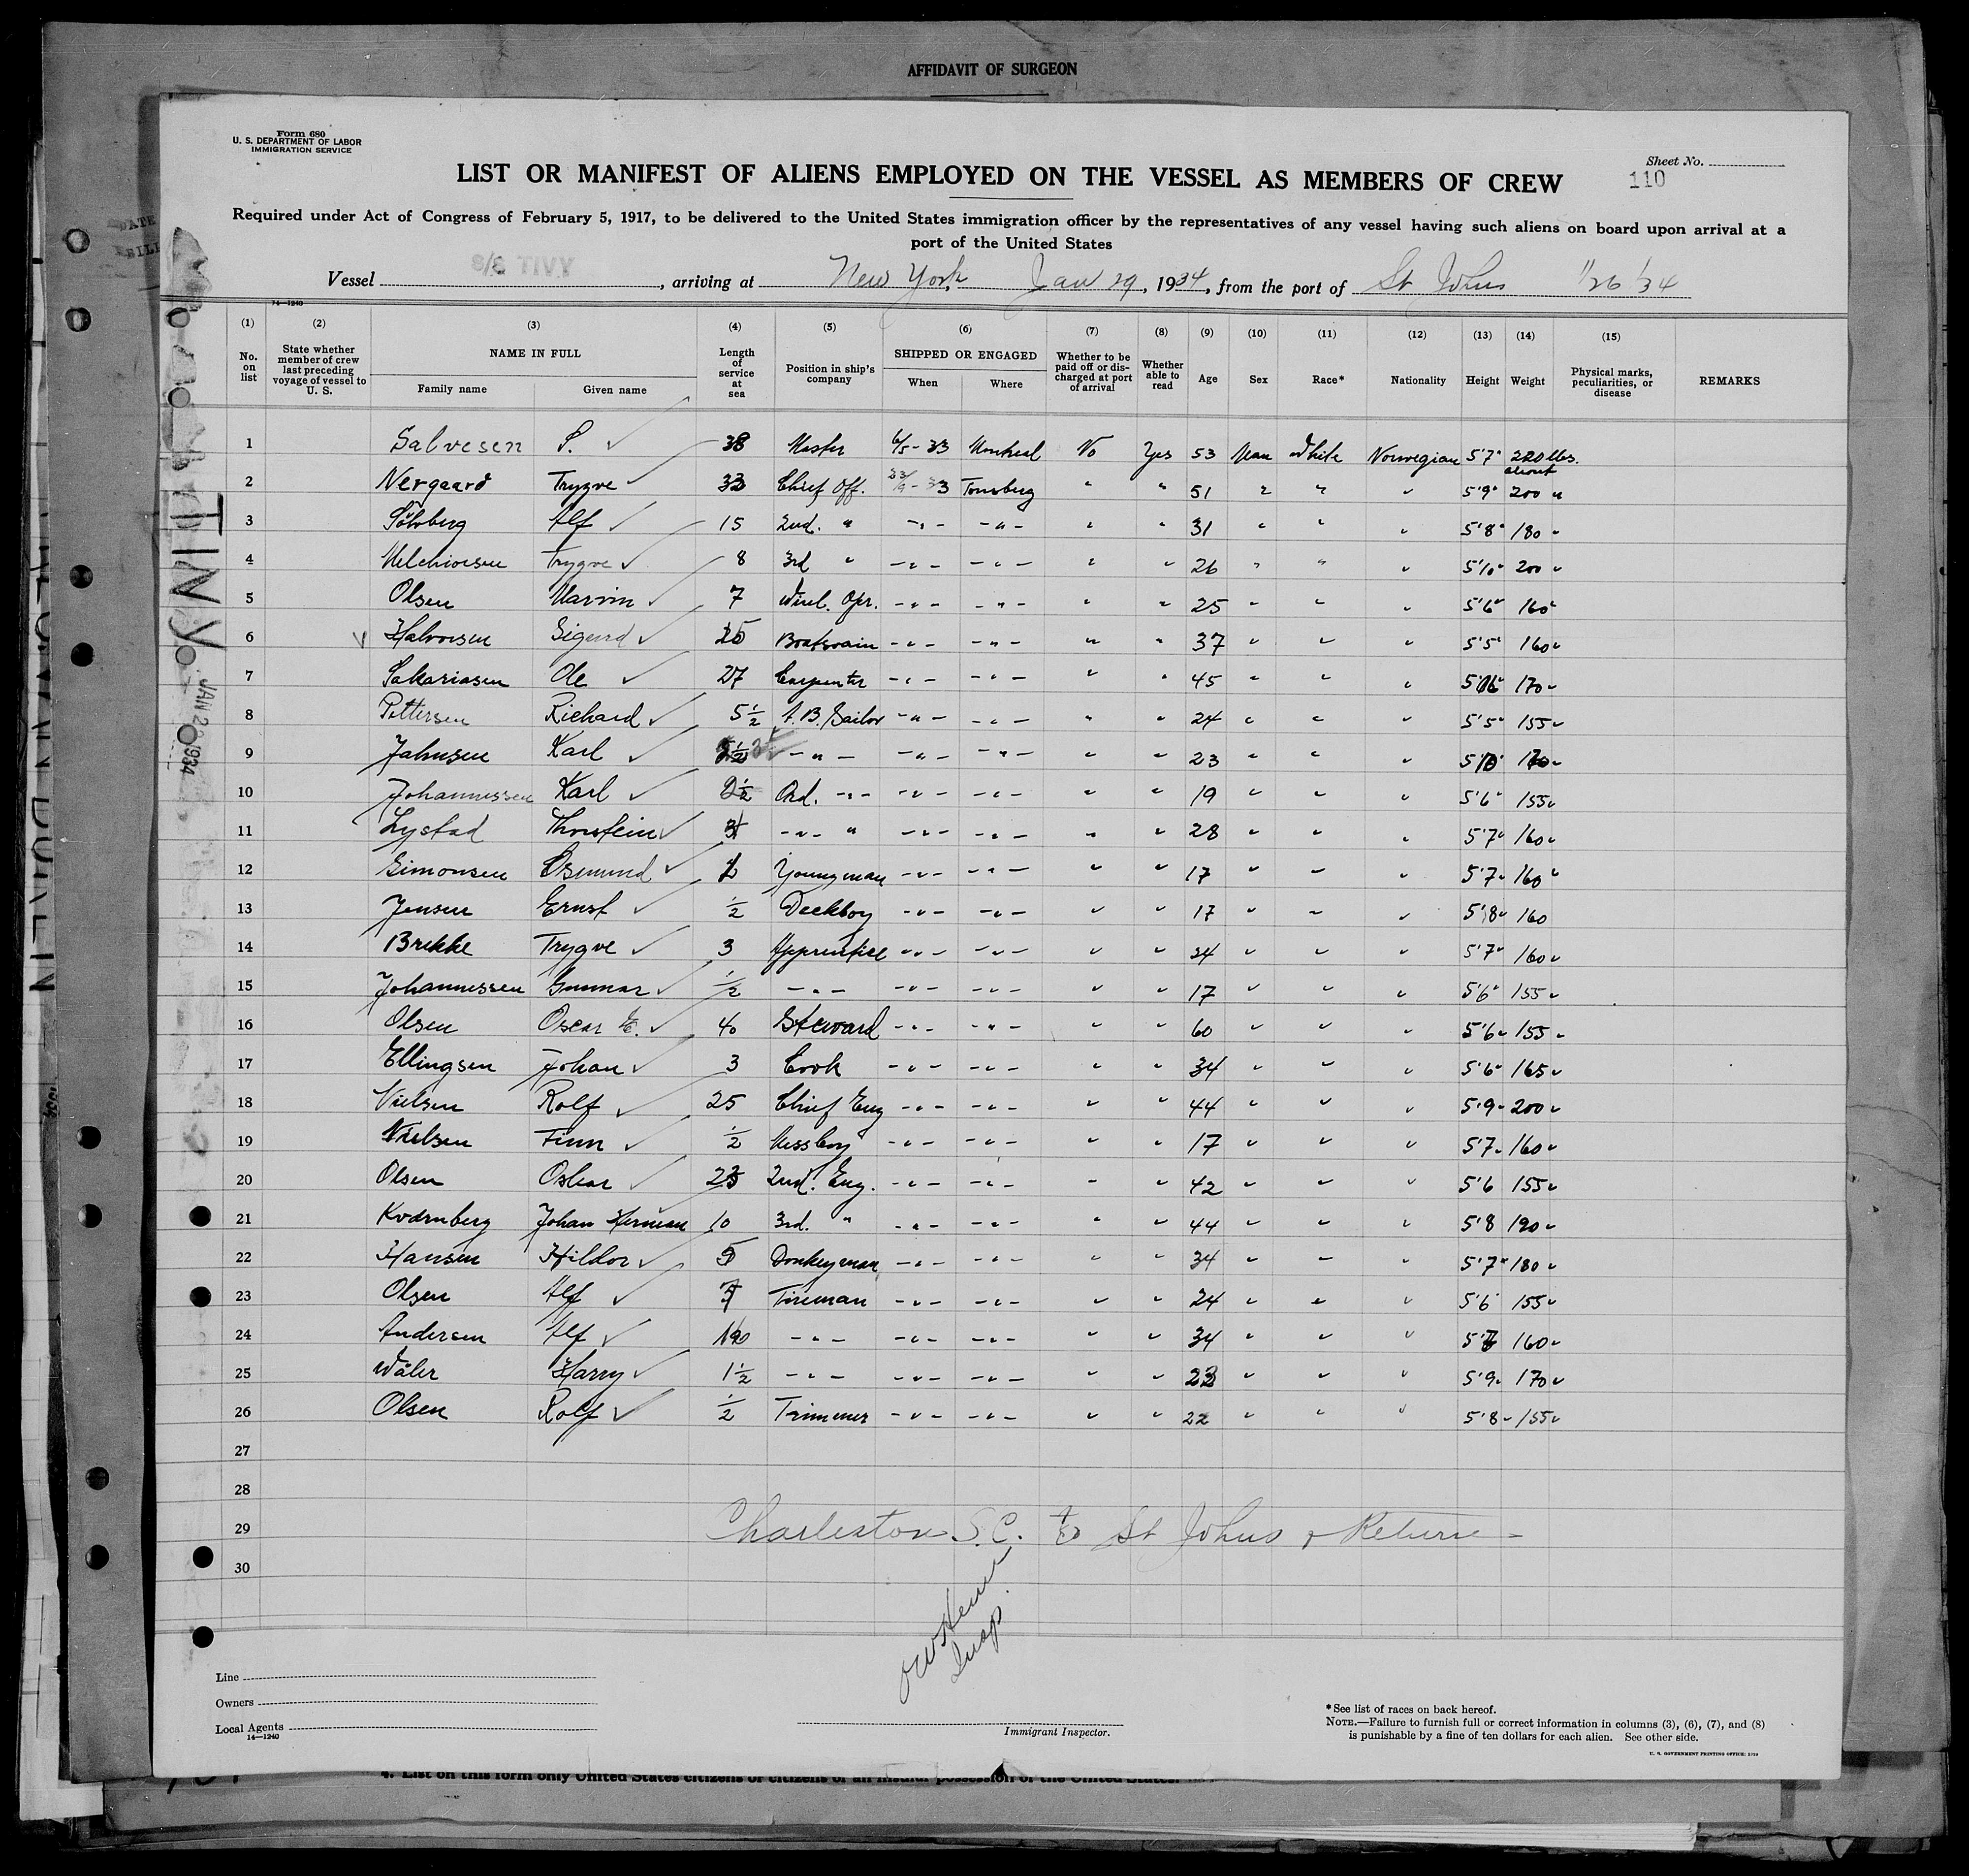 AFFIDAVIT OF SURGEON
Form 680
U. S. DEPARTMENT OF LABOR
IMMIGRATION SERVICE
Sheet No.
110
LIST OR MANIFEST OF ALIENS EMPLOYED ON THE VESSEL AS MEMBERS OF CREW
Required under Act of Congress of February 5, 1917, to be delivered to the United States immigration officer by the representatives of any vessel having such aliens on board upon arrival at a
port of the United States
Vessel S/S TIVY, arriving at New York, Jan 29, 1934, from the port of St Johns 1/26/34
14-1240
(1) (2) (3) (4) (5) (6) (7) (8) (9) (10) (11) (12) (13) (14) (15)
No. on list State whether member of crew last preceding voyage of vessel to U. S. NAME IN FULL Family name Given name Length of service at sea Position in ship's company SHIPPED OR ENGAGED When Where Whether to be paid off or discharged at port of arrival Whether able to read Age Sex Race* Nationality Height Weight Physical marks, peculiarities, or disease REMARKS
1 Salvesen S. ✓ 38 Master 6/5-33 Montreal No Yes 53 Man White Norwegian 5'7" 220 lbs. about
2 Nergaard Trygve ✓ 33 Chief Off. 23/9-33 Tonsberg " " 51 " " " 5'9" 200 "
3 Alf ✓ 15 2nd. " -"- -"- " " 31 " " " 5'8" 180 "
4 Melchiorsen Trygve ✓ 8 3rd " -"- -"- " " 26 " " " 5'10" 200 "
5 Olsen Marvin ✓ 7 Wirel. Opr. -"- -"- " " 25 " " " 5'6" 160 "
6 ✓ Halvorsen Sigurd ✓ Boatswain -"- -"- " " 37 " " " 5'5" 160 "
7 Sakariasen Ole ✓ 27 Carpenter -"- -"- " " 45 " " " 170 "
8 Pettersen Richard ✓ 5½ A.B. Sailor -"- -"- " " 24 " " " 5'5" 155 "
9 Jahnsen Karl ✓ -"- -"- -"- " " 23 " " "
10 Johannessen Karl ✓ 2½ Ord. -"- -"- -"- " " 19 " " " 5'6" 155 "
11 Lystad Thorstein ✓ -"- " -"- -"- " " 28 " " " 5'7" 160 "
12 Simonsen Osmund ✓ Youngman -"- -"- " " 17 " " " 5'7" 160 "
13 Jensen Ernst ✓ ½ Deckboy -"- -"- " " 17 " " " 5'8" 160
14 Brekke Trygve ✓ 3 Apprentice -"- -"- " " 24 " " " 5'7" 160 "
15 Johannessen Gunnar ✓ ½ -"- -"- -"- " " 17 " " " 5'6" 155 "
16 Olsen Oscar E. ✓ 40 Steward -"- -"- " " 60 " " " 5'6" 155 "
17 Ellingsen Johan ✓ 3 Cook -"- -"- " " 34 " " " 5'6" 165 "
18 Nielsen Rolf ✓ 25 Chief Eng -"- -"- " " 44 " " " 5'9" 200 "
19 Nielsen Finn ✓ ½ Messboy -"- -"- " " 17 " " " 5'7" 160 "
20 Olsen Oskar ✓ 2nd. Eng. -"- -"- " " 42 " " " 5'6 155 "
21 Kvarnberg Johan Herman 10 3rd. " -"- -"- " " 44 " " " 5'8 190 "
22 Hansen Hildor ✓ 5 Donkeyman -"- -"- " " 34 " " " 5'7" 180 "
23 Olsen Alf ✓ 7 Fireman -"- -"- " " 24 " " " 5'6" 155 "
24 Andersen Alf ✓ -"- -"- -"- " " 34 " " " 160 "
25 Wäler Harry ✓ 1½ -"- -"- -"- " " 23 " " " 5'9" 170 "
26 Olsen Rolf ✓ ½ Trimmer -"- -"- " " 22 " " " 5'8" 155 "
27
28
29 Charleston S.C. to St Johns & Return -
30
Insp.
Line
Owners
Local Agents
14—1240
Immigrant Inspector.
*See list of races on back hereof.
NOTE.—Failure to furnish full or correct information in columns (3), (6), (7), and (8)
is punishable by a fine of ten dollars for each alien. See other side.
U. S. GOVERNMENT PRINTING OFFICE
4. List on this form only United States citizens or citizens of an insular possession of the United States.